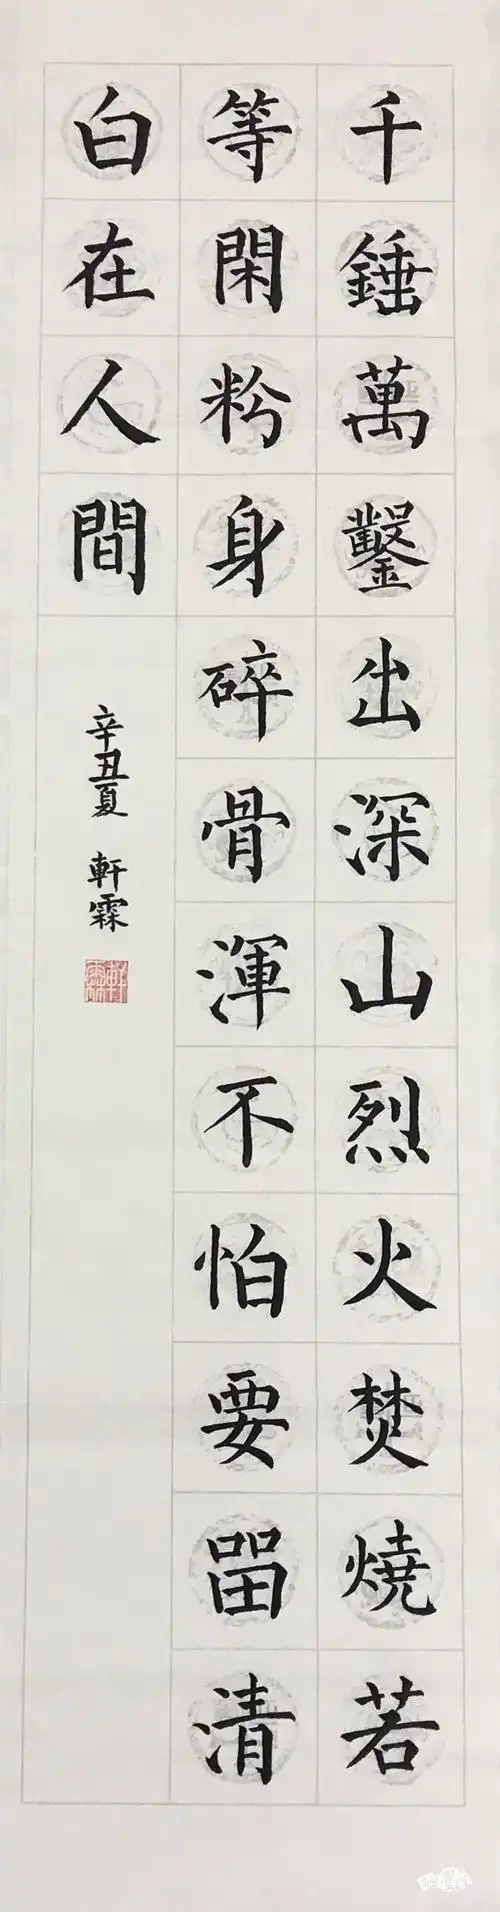 千錘萬鑿出深山烈火焚燒若
等閑粉身碎骨渾不怕要畱清
白在人間
辛丑夏 軒霖
軒霖